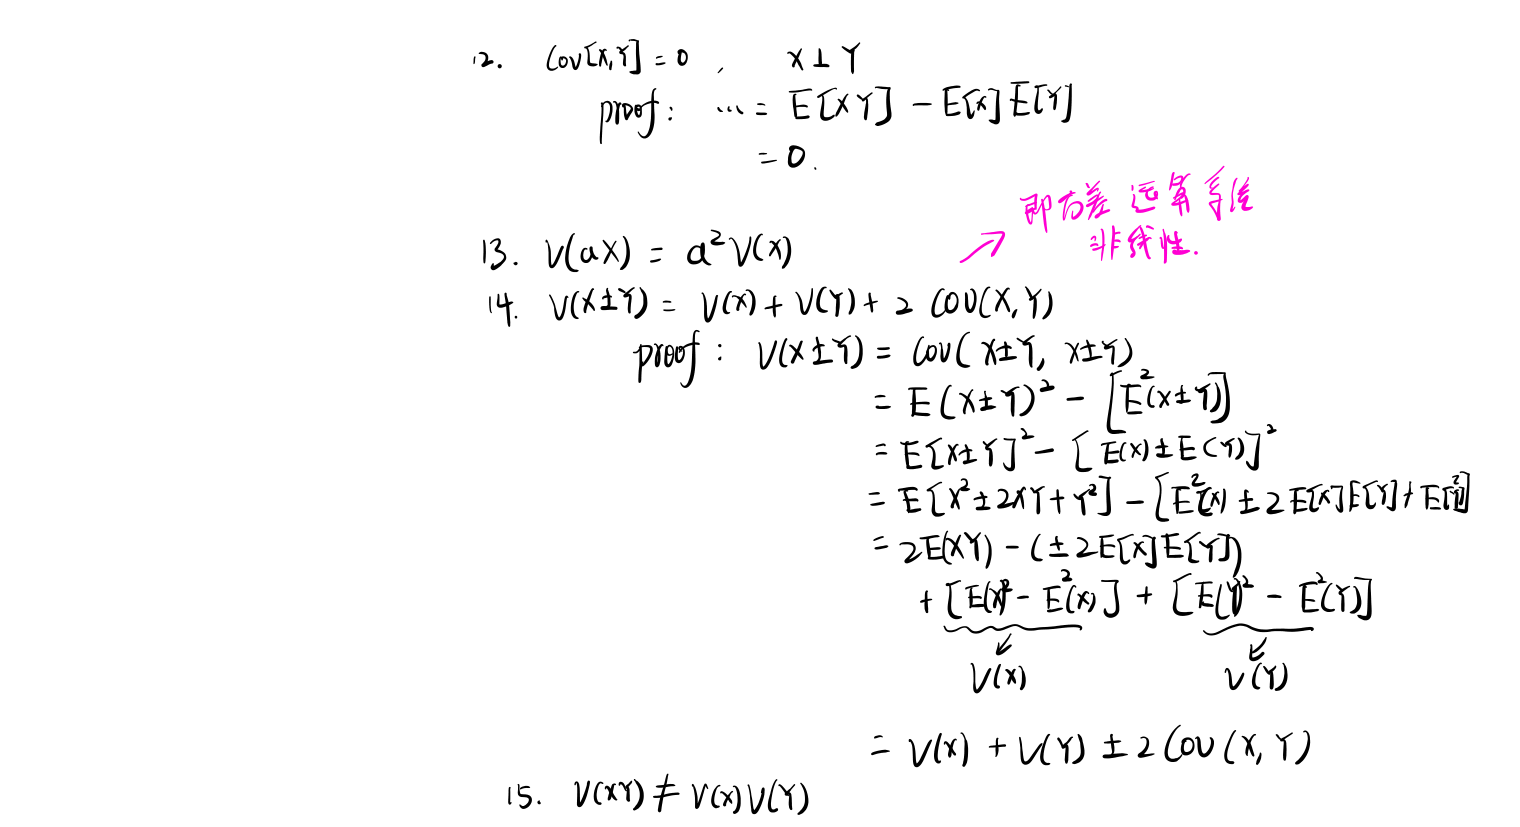 12. Cov[X,Y] = 0 , X ⊥ Y
proof: ... = E[XY] - E[X]E[Y]
= 0.
即方差运算系统
非线性.
13. V(aX) = a²V(X)
14. V(X±Y) = V(X) + V(Y) + 2 COV(X,Y)
proof: V(X±Y) = Cov(X±Y, X±Y)
= E(X±Y)² - [E²(X±Y)]
= E[X±Y]² - [E(X)±E(Y)]²
= E[X²±2XY+Y²] - [E²[X] ± 2E[X]E[Y] + E[Y]²]
= 2E(XY) - (±2E[X]E[Y])
+ [E(X)² - E²(X)] + [E(Y)² - E²(Y)]
V(X) V(Y)
= V(X) + V(Y) ± 2 Cov(X,Y)
15. V(XY) ≠ V(X)V(Y)